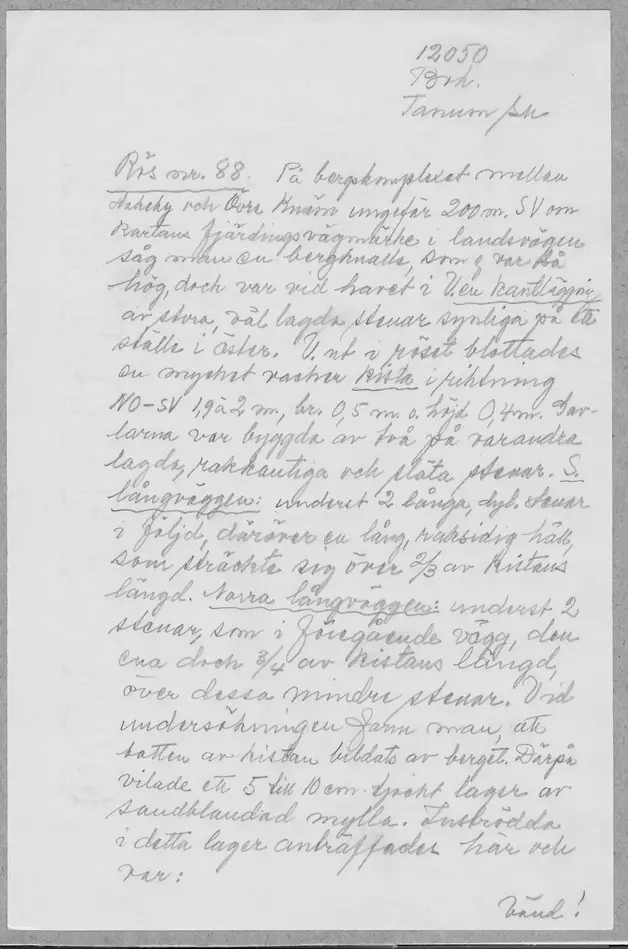 12050
Boh.
Tanum sn
Rös nr. 88. På bergskomplexet mellan
och Övre Knäm ungefär 200 m. SV om
kartans fjärdingsvägmärke i landsvägen
såg man en bergknalle, som ej var så
hög, doch var vid havet i V. en kantläggning
av stora, väl lagda, stenar synliga på ett
ställe i öster. V. ut i röset blottades
en mycket vacker kista i riktning
NO-SV 1,9 à 2 m., br. 0,5 m. o. höjd 0,4 m. Gav-
larna var byggda av två på varandra
lagda, rakkantiga och släta stenar. S.
långväggen: underst 2 långa, dyl. stenar
i följd, däröver en lång, raksidig häll,
som sträckte sig över 2/3 av kistans
längd. Norra långväggen: underst 2
stenar, som i föregående vägg, den
ena doch 3/4 av kistans längd,
över dessa mindre stenar. Vid
undersökningen fann man, att
botten av kistan bildats av berget. Därpå
vilade ett 5 till 10 cm. tjockt lager av
sandblandad mylla. Inströdda
i detta lager anträffades här och
var:
Vänd!